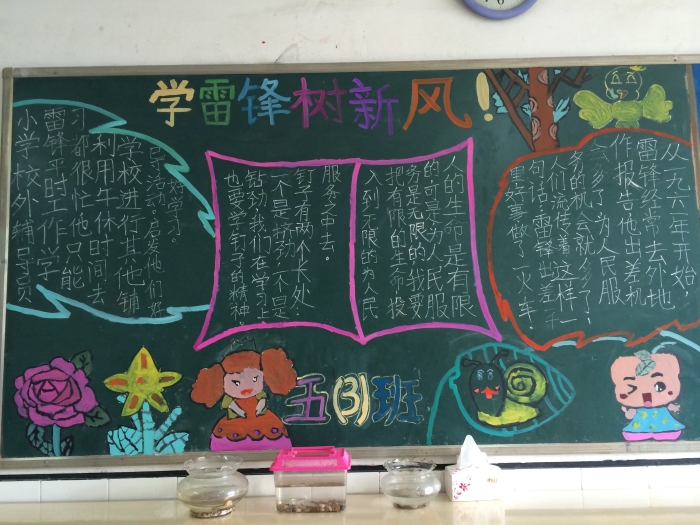 学雷锋树新风!
小学校外辅导员
雷锋平时工作学
习都很忙他只能
利用午休时间去
学校进行其他辅
导活动。启发他们好
好学习。
人的生命是有限
的可是为人民服
务是无限的我要
把有限的生命投
入到无限的为人民
服务之中去。
钉子有两个长处:
一个是挤劲一个是
钻劲我们在学习上
也要学钉子的精神。
从一九六一年开始,
雷锋经常去外地
作报告他出差机
会多了为人民服
务的机会就多了,
人们流传着这样一
句话:雷锋出差一千
里好事做了一火车!
五(3)班